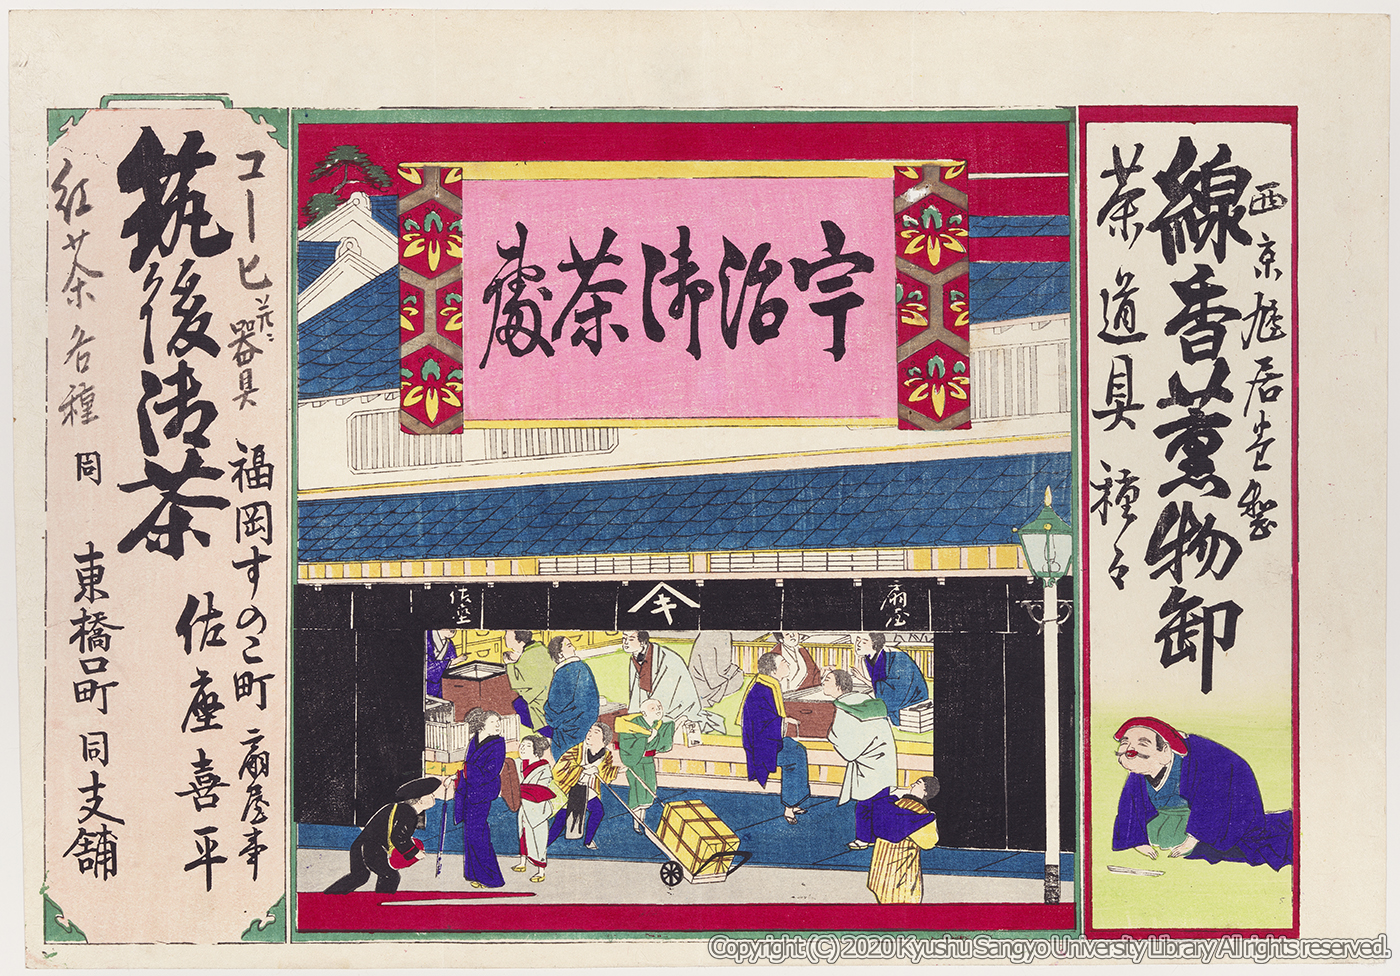 西京鳩居堂製
線香薫物卸
茶道具種々
宇治御茶處
扇屋
キ
佐座
コーヒ并ニ器具
筑後御茶
紅茶各種
福岡すのこ町 扇屋事
佐座喜平
同 東橋口町 同支舗
Copyright (C) 2020 Kyushu Sangyo University Library All rights reserved.